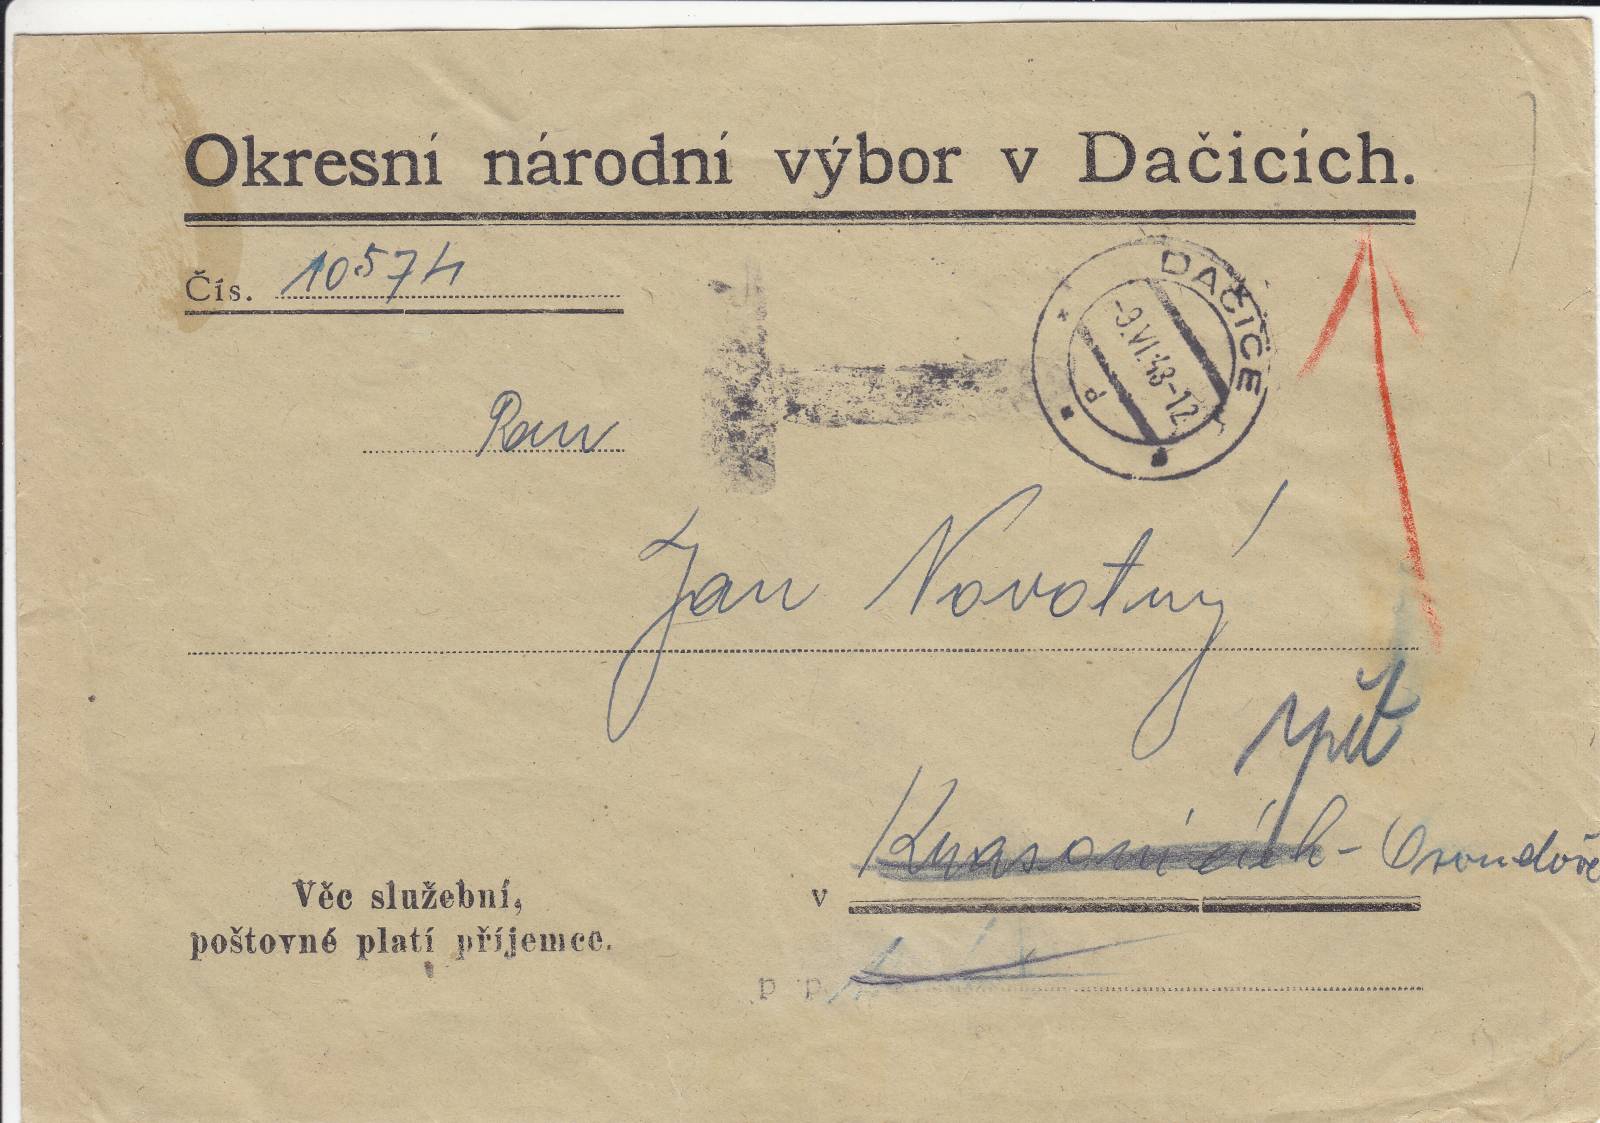 Okresní národní výbor v Dačicích.
Čís. 10574
DAČICE
-9.VI.48-12
d
Pan
Jan Novotný
zpět
v Kvasonicích -
Věc služební,
poštovné platí příjemce.
p. p.